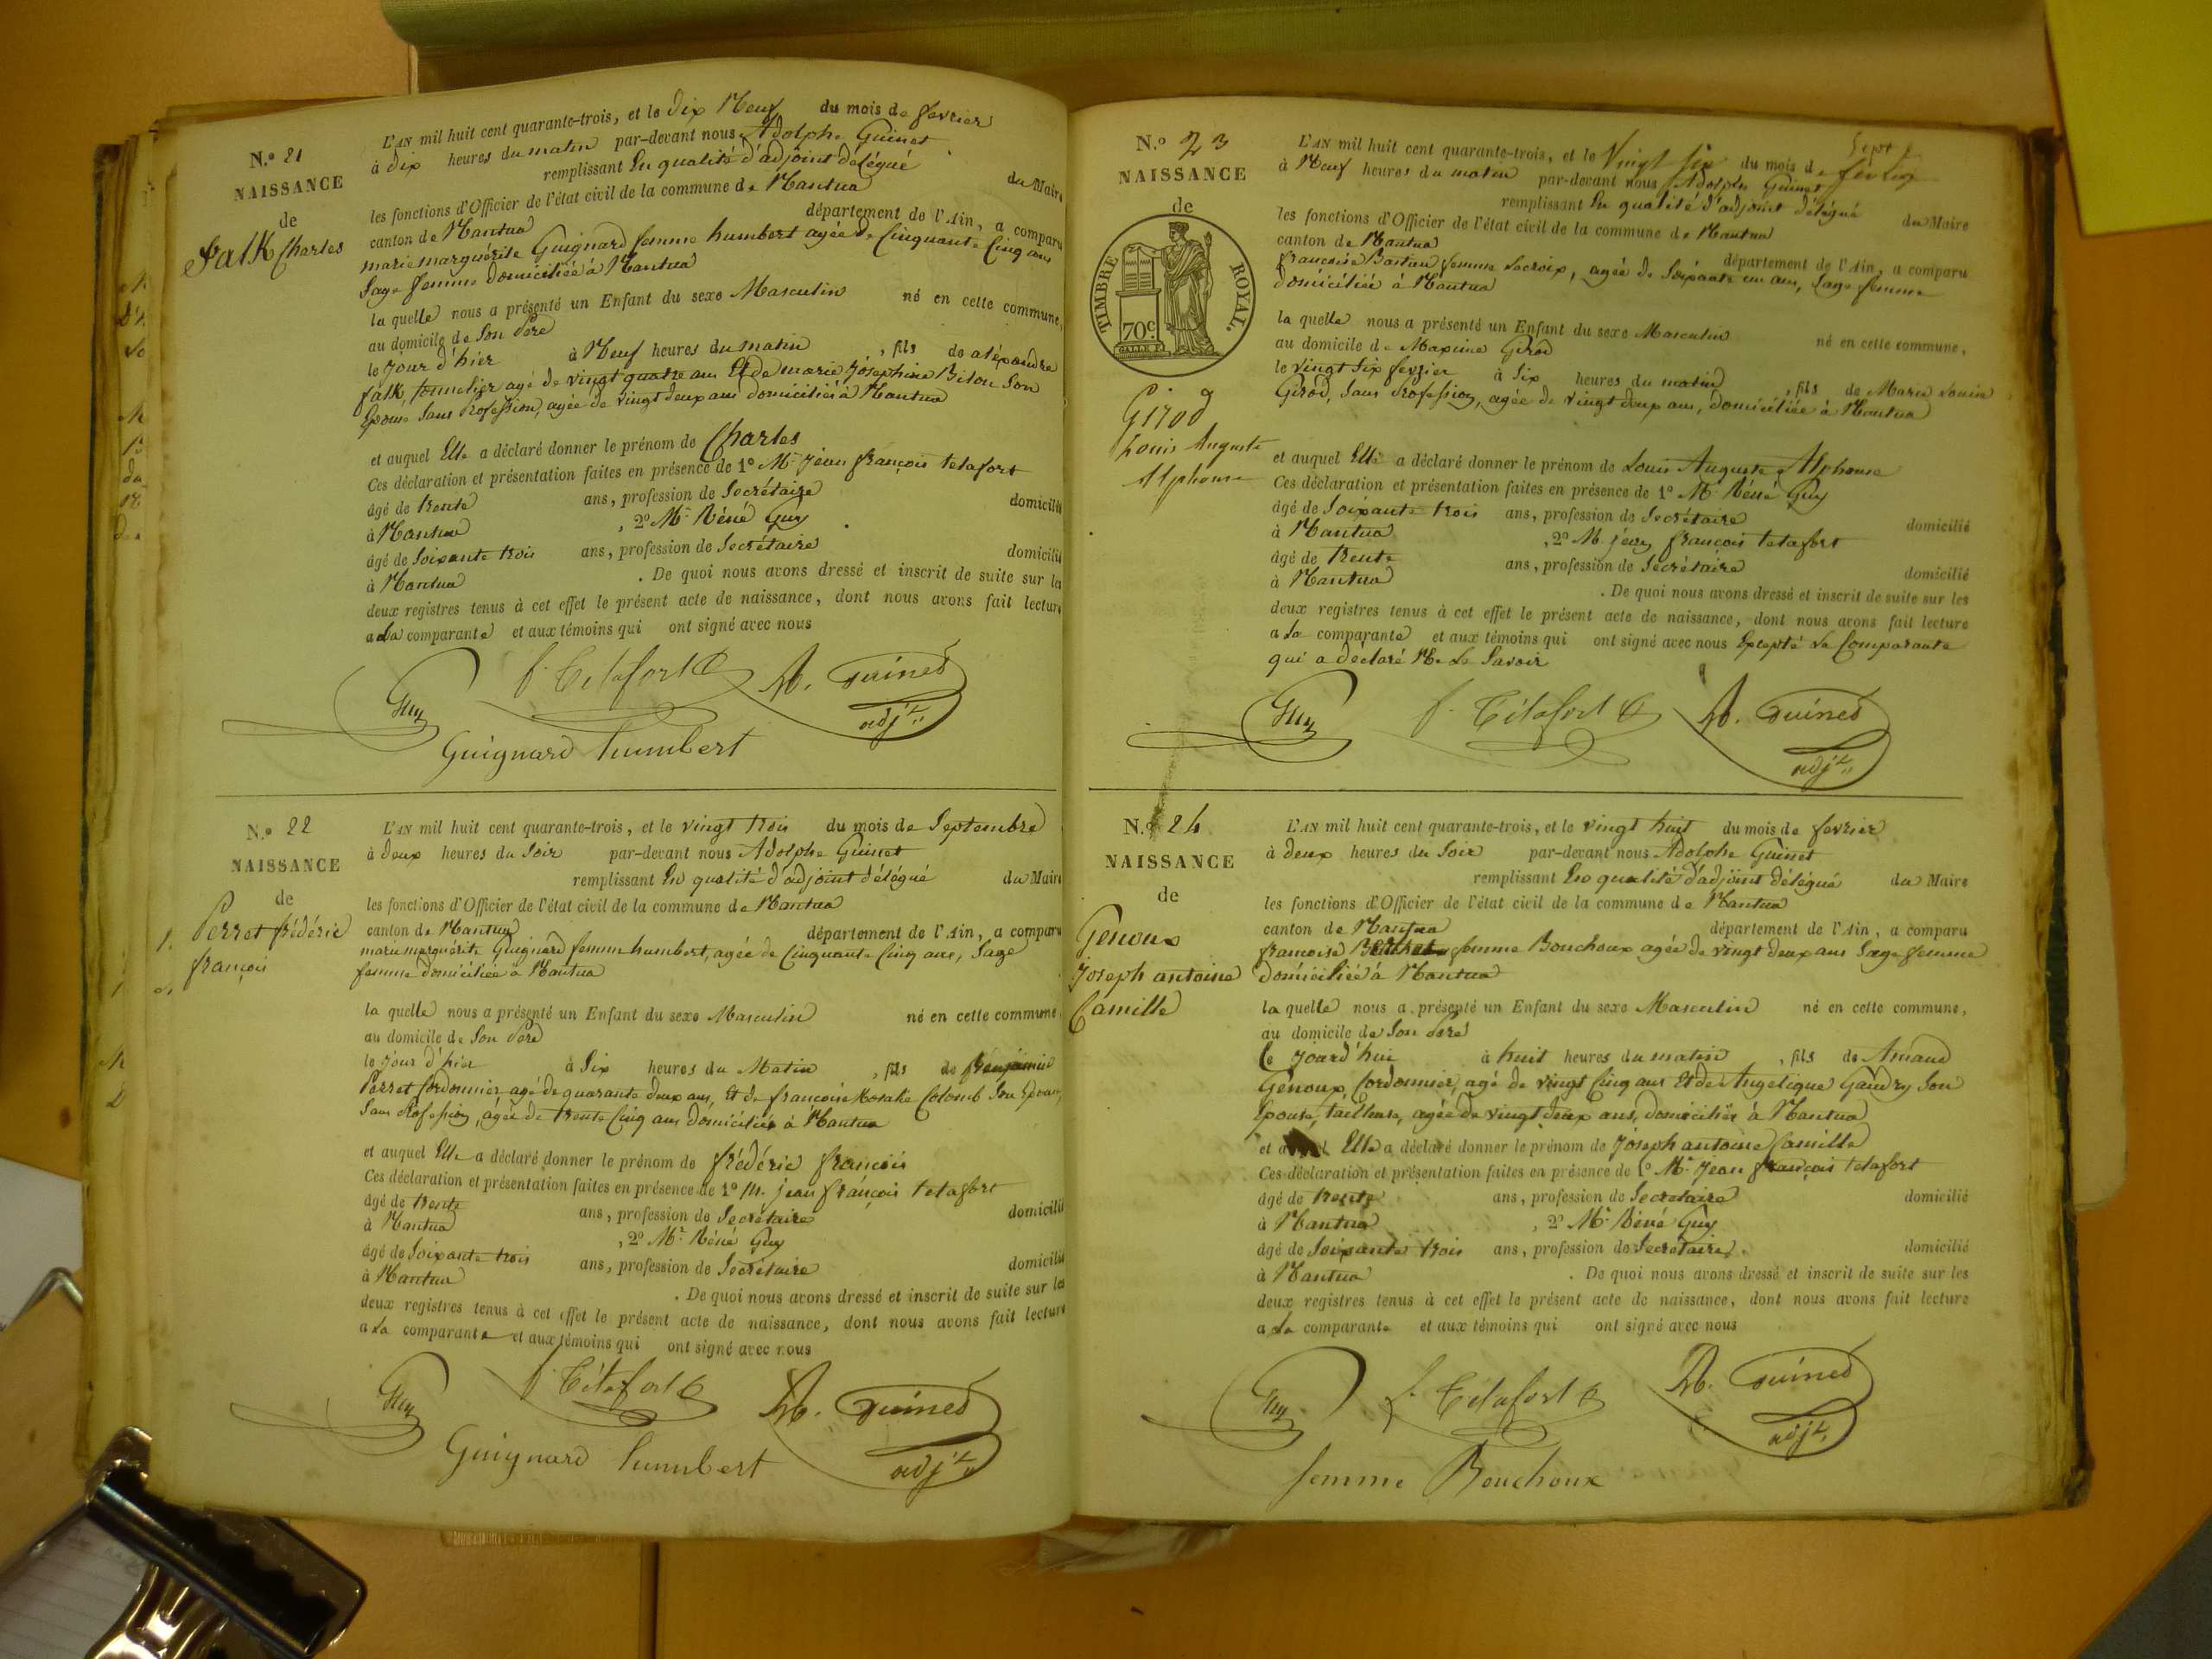 N.º 21
NAISSANCE
de
falk Charles
L'AN mil huit cent quarante-trois, et le dix Neuf du mois de fevrier
à dix heures du matin par-devant nous Adolphe Guinet
remplissant En qualité d'adjoint délégué du Maire
les fonctions d'Officier de l'état civil de la commune de Nantua
canton de Nantua département de l'Ain, a comparu
marie marguérite Guignard femme humbert agée de Cinquante Cinq ans
Sage femme domiciliée à Nantua
la quelle nous a présenté un Enfant du sexe Masculin né en cette commune,
au domicile de Son Père
le Jour d'hier à Neuf heures du matin, fils de aléxandre
falk, tonnelier agé de vingt quatre ans Et de marie Joséphine Biton Son
Epouse Sans Profession, agée de vingt deux ans domiciliés à Nantua
et auquel Elle a déclaré donner le prénom de Charles
Ces déclaration et présentation faites en présence de 1º Mr Jean françois tetafort
âgé de trente ans, profession de Secrétaire domicilié
à Nantua, 2º Mr Réné Guy
âgé de Soixante trois ans, profession de Secrétaire domicilié
à Nantua. De quoi nous avons dressé et inscrit de suite sur la
deux registres tenus à cet effet le présent acte de naissance, dont nous avons fait lecture
a La comparante et aux témoins qui ont signé avec nous
Guy f. Tétafort A. Guinet
adjt
Guignard humbert
N.º 22
NAISSANCE
de
Perret frédéric
françois
L'AN mil huit cent quarante-trois, et le vingt trois du mois de Septembre
à deux heures du Soir par-devant nous Adolphe Guinet
remplissant En qualité d'adjoint délégué du Maire
les fonctions d'Officier de l'état civil de la commune de Nantua
canton de Nantua département de l'Ain, a comparu
marie marguérite Guignard femme humbert, agée de Cinquante Cinq ans, Sage
femme domiciliée à Nantua
la quelle nous a présenté un Enfant du sexe Masculin né en cette commune,
au domicile de Son Père
le Jour d'hier à Six heures du Matin, fils de Benjamin
Perret Cordonnier agé de quarante deux ans, Et de françoise Colomb Son Epouse,
Sans Profession, agée de trente Cinq ans domiciliés à Nantua
et auquel Elle a déclaré donner le prénom de frédéric françois
Ces déclaration et présentation faites en présence de 1º M. jean françois tetafort
âgé de trente ans, profession de Secrétaire domicilié
à Nantua, 2º Mr Réné Guy
âgé de Soixante trois ans, profession de Secrétaire domicilié
à Nantua. De quoi nous avons dressé et inscrit de suite sur les
deux registres tenus à cet effet le présent acte de naissance, dont nous avons fait lecture
a La comparante et aux témoins qui ont signé avec nous
Guy f. Tétafort A. Guinet
adjt
Guignard humbert
N.º 23
NAISSANCE
de
TIMBRE ROYAL.
70c
Girod
Louis Auguste
Alphonse
L'AN mil huit cent quarante-trois, et le Vingt Six du mois de février
à Neuf heures du matin par-devant nous Adolphe Guinet
remplissant En qualité d'adjoint délégué du Maire
les fonctions d'Officier de l'état civil de la commune de Nantua
canton de Nantua département de l'Ain, a comparu
francoise femme Lacroix, agée de Soixante un ans, Sage femme
domiciliée à Nantua
la quelle nous a présenté un Enfant du sexe Masculin né en cette commune,
au domicile de Maxime Girod
le vingt Six fevrier à Six heures du matin, fils de Marie Louise
Girod, Sans Profession, agée de vingt deux ans, domiciliée à Nantua
et auquel Elle a déclaré donner le prénom de Louis Auguste Alphonse
Ces déclaration et présentation faites en présence de 1º Mr Réné Guy
âgé de Soixante trois ans, profession de Secrétaire domicilié
à Nantua, 2º M. jean françois tetafort
âgé de trente ans, profession de Secrétaire domicilié
à Nantua. De quoi nous avons dressé et inscrit de suite sur les
deux registres tenus à cet effet le présent acte de naissance, dont nous avons fait lecture
a La comparante et aux témoins qui ont signé avec nous Excepté La Comparante
qui a déclaré Ne Le Savoir
Guy f. Tétafort A. Guinet
adjt
N.º 24
NAISSANCE
de
Genoux
Joseph antoine
Camille
L'AN mil huit cent quarante-trois, et le vingt huit du mois de fevrier
à deux heures du Soir par-devant nous Adolphe Guinet
remplissant En qualité d'adjoint délégué du Maire
les fonctions d'Officier de l'état civil de la commune de Nantua
canton de Nantua département de l'Ain, a comparu
francoise femme Bouchoux agée de vingt deux ans Sage femme
domiciliée à Nantua
la quelle nous a présenté un Enfant du sexe Masculin né en cette commune,
au domicile de Son Père
le Jourd'hui à huit heures du matin, fils de Amand
Génoux, Cordonnier, agé de vingt Cinq ans Et de Angélique Gandry Son
Epouse, tailleuse, agée de vingt deux ans, domiciliés à Nantua
et auquel Elle a déclaré donner le prénom de Joseph antoine Camille
Ces déclaration et présentation faites en présence de 1º Mr Jean françois tetafort
âgé de trente ans, profession de Secretaire domicilié
à Nantua, 2º Mr Réné Guy
âgé de Soixante trois ans, profession de Secretaire. domicilié
à Nantua. De quoi nous avons dressé et inscrit de suite sur les
deux registres tenus à cet effet le présent acte de naissance, dont nous avons fait lecture
a La comparante et aux témoins qui ont signé avec nous
Guy f. Tétafort A. Guinet
adjt
femme Bouchoux